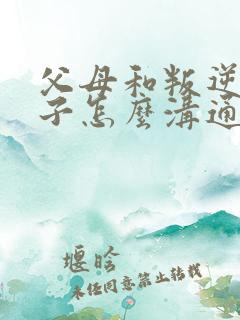 父母和叛逆
子怎麼溝通
堰晗
未经同意禁止转载